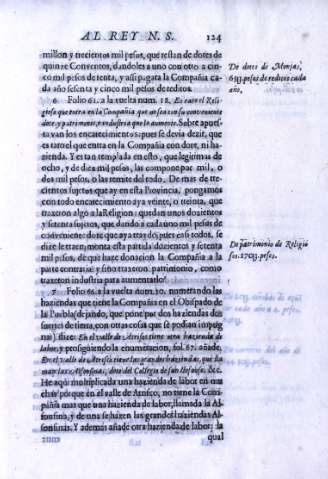 AL REY N. S. 124
millon y trecientos mil pesos, que restan de dotes de
quinze Conventos, dandoles a uno con otro a cin-
co mil pesos de renta, y assi pagata la Compañia ca-
da año sesenta y cinco mil pesos de reditos.
De dotes de Monjas,
65U. pesos de reditos cada
año.
6. Folio 61. a la vuelta num. 18. Es raro el Reli-
gioso que entra en la Compañia que no sea con su conveniente
dote, y patrimonio, en industria que lo aumente. Sobre apues-
ta von los encarecimientos; pues se devia dezir, que
es raro el que entra en la Compañia con dote, ni ha-
zienda. Y es tan templada en esto, que legitimas de
ocho, y de diez mil pesos, las compone por mil, o
dos mil pesos, o las remite del todo. De mas de tre-
cientos sujetos que ay en esta Provincia, pongamos
con todo encarecimiento aya veinte, o treinta, que
traxeron algo a la Religion: quedan unos dozientos
y setenta sujetos, que dando a cada uno mil pesos de
conveniente dote que aya traydo; pues casi todos, se
dize le traen, monta esta partida dozientos y setenta
mil pesos, de que haze donacion la Compañia a la
parte contraria; y sino traxeron patrimonio, como
traxeron industria para aumentarlo?
De patrimonio de Religio
sos. 270U. pesos.
7. Folio 66. a la vuelta num. 20. numerando las
haziendas que tiene la Compañia en el Obispado de
la Puebla (dejando, que pone por dos haziendas dos
suertes de tierra, con otras cosas que se podian impug-
nar) dize: En el valle de Atrisco tiene una hazienda de
labor; y prosiguiendo la enumeracion, fol. 67. añade.
En el valle de Atrisco tiene las grandes haziendas, que lla-
man las Alfonsinas, dote del Colegio de san Ilefonso, &c.
He aqui multiplicada una hazienda de labor en mu-
chas: porque en el valle de Atrisco, no tiene la Com-
pañia mas que una hazienda de labor, llamada la Al-
fonsina, y de una se hazen las grandes haziendas Al-
fonsinas. Y ademas añade otra hazienda de labor; la
qual